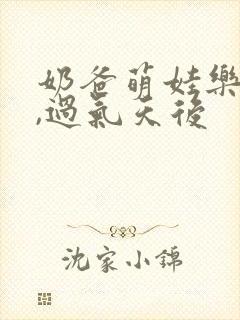 奶爸萌娃樂
,過氣天後
沈家小錦